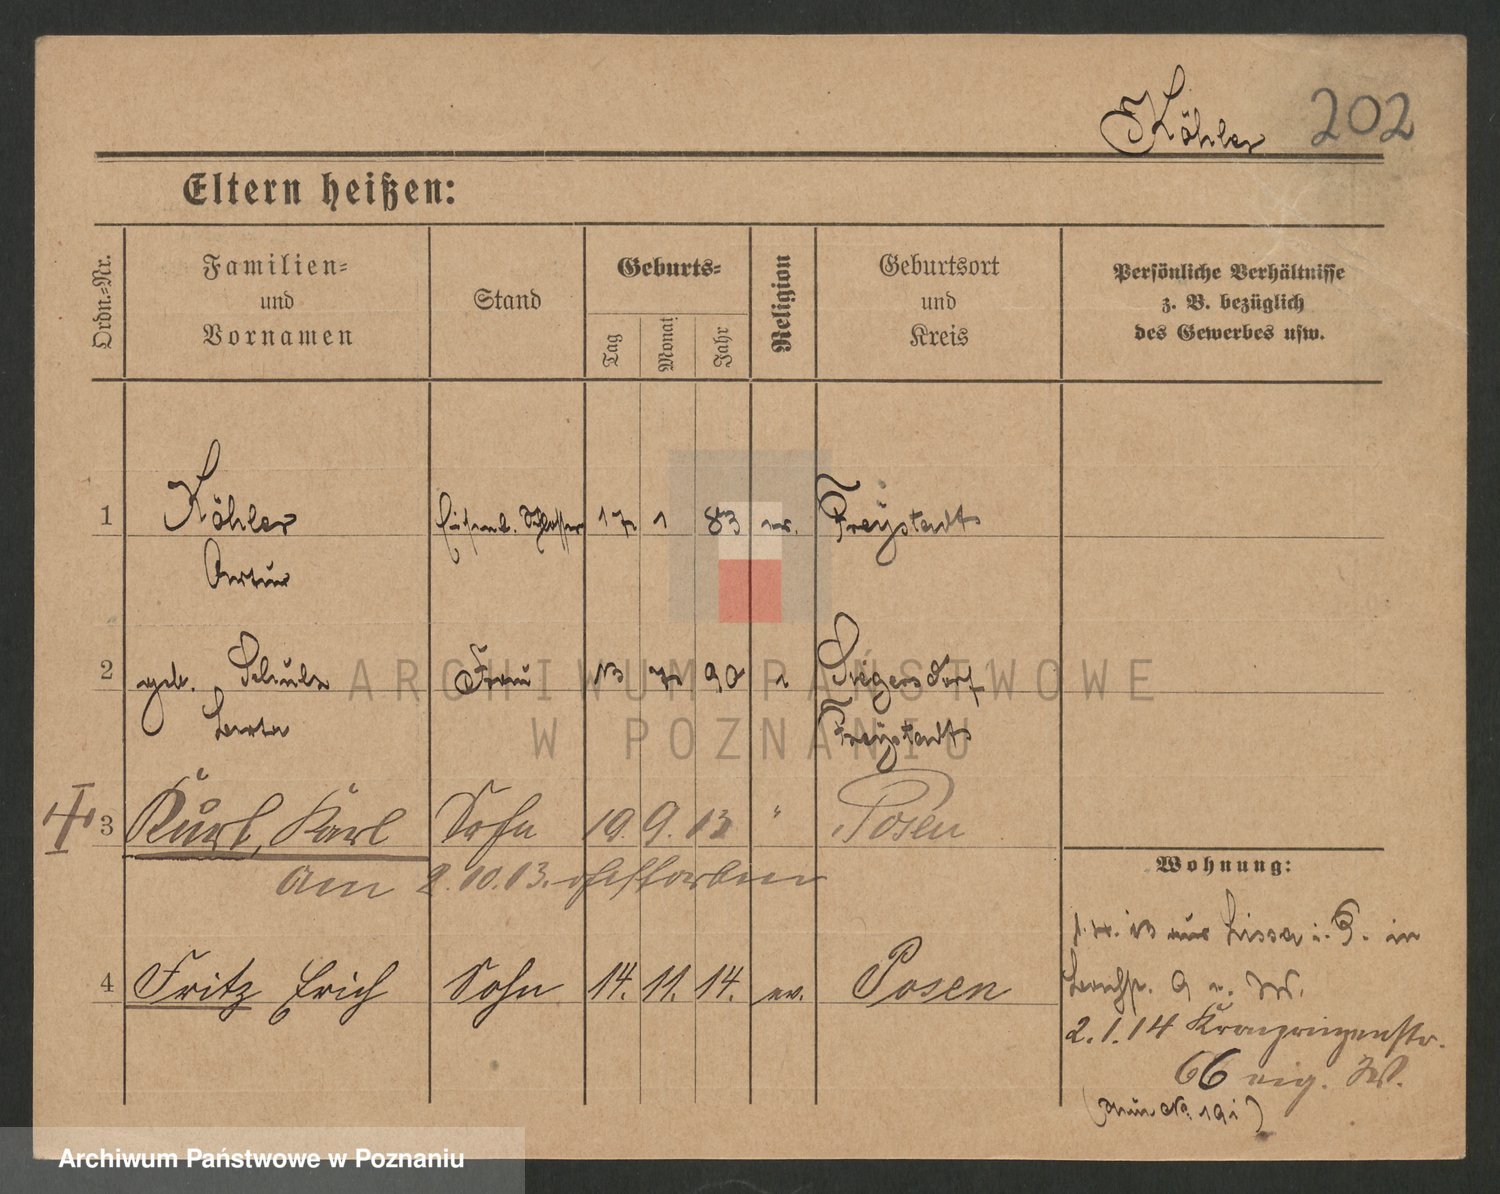 Köhler 202
Eltern heißen:
Ordn.-Nr.
Familien-
und
Vornamen
Stand
Geburts-
Tag
Monat
Jahr
Religion
Geburtsort
und
Kreis
Persönliche Verhältnisse
z. B. bezüglich
des Gewerbes usw.
1 Köhler Eisenb. Schlosser 17 1 83 ev. Freystadt
Artur
2 geb. Schulz Frau 13 7 90 Siegersdorf
Berta Freystadt
3 Kurt, Karl Sohn 19. 9. 13 " Posen
am 2.10.13. verstorben
Wohnung:
Lissa i. P. in
4 Fritz Erich Sohn 14. 11. 14. ev. Posen
2.1.14 Kronprinzenstr.
66 eig. W.
ARCHIWUM PAŃSTWOWE
W POZNANIU
Archiwum Państwowe w Poznaniu